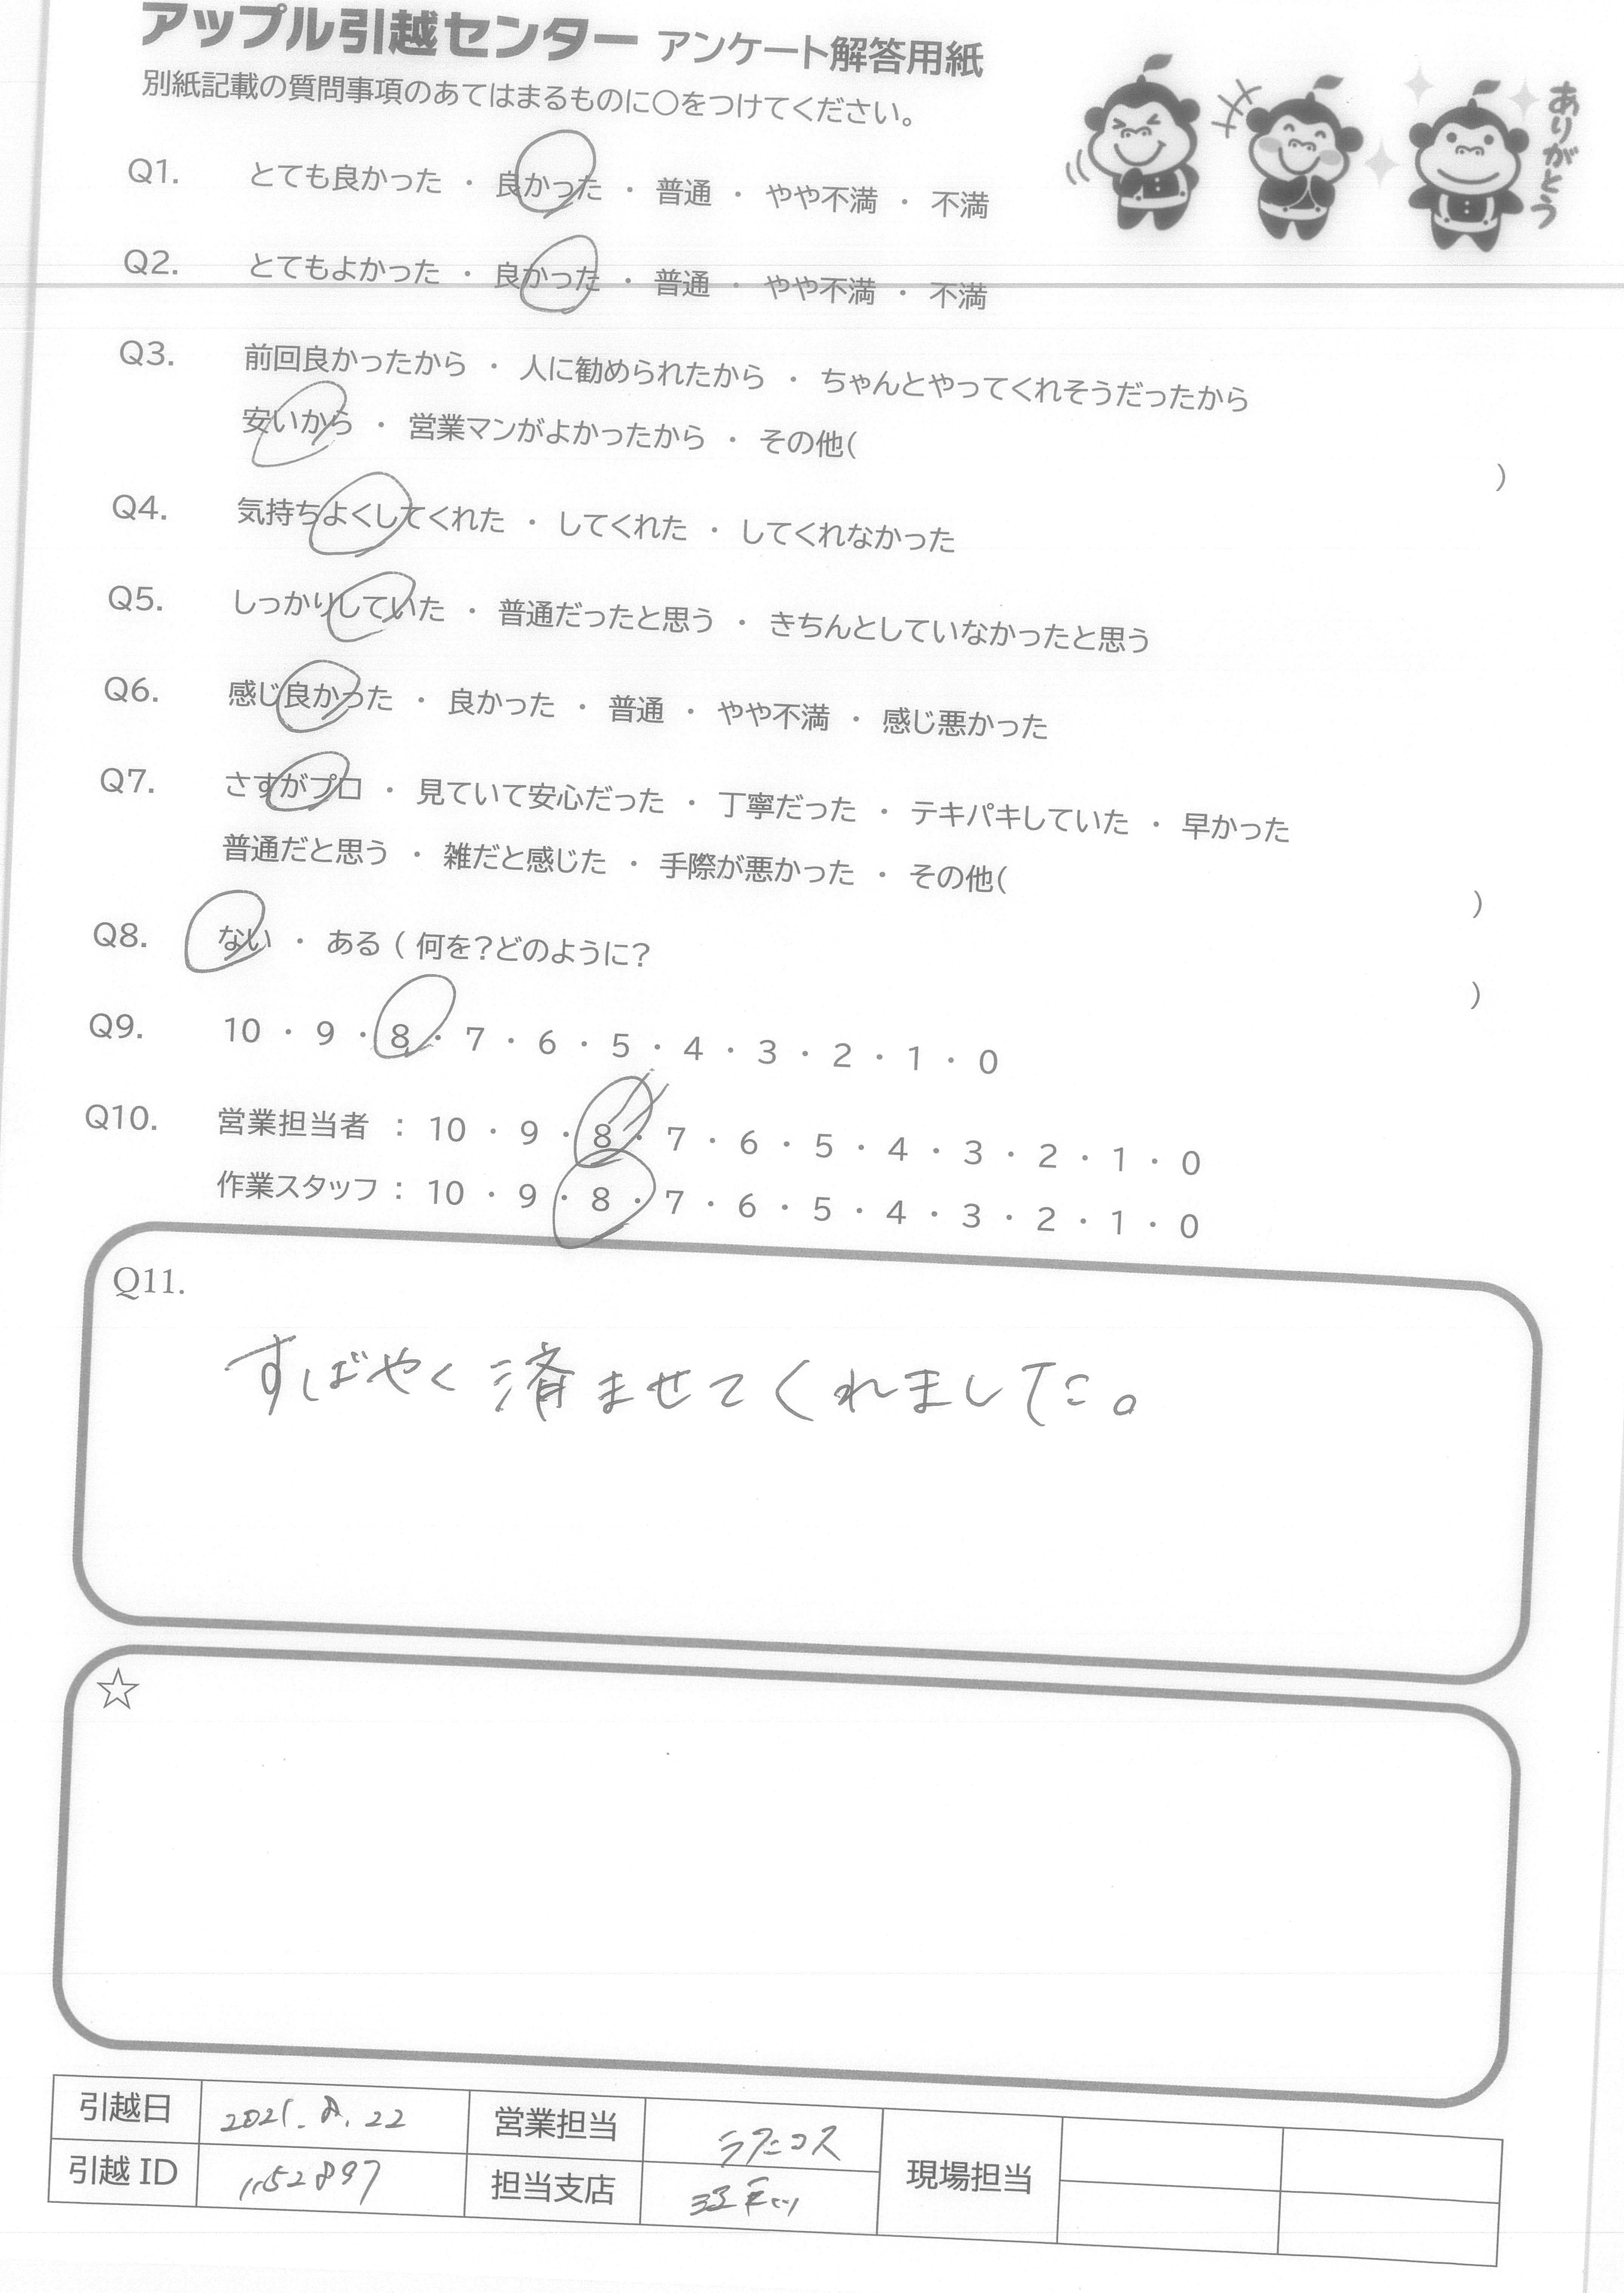 アップル引越センター アンケート解答用紙
別紙記載の質問事項のあてはまるものに○をつけてください。
ありがとう
Q1. とても良かった ・ 良かった ・ 普通 ・ やや不満 ・ 不満
Q2. とてもよかった ・ 良かった ・ 普通 ・ やや不満 ・ 不満
Q3. 前回良かったから ・ 人に勧められたから ・ ちゃんとやってくれそうだったから
安いから ・ 営業マンがよかったから ・ その他( )
Q4. 気持ちよくしてくれた ・ してくれた ・ してくれなかった
Q5. しっかりしていた ・ 普通だったと思う ・ きちんとしていなかったと思う
Q6. 感じ良かった ・ 良かった ・ 普通 ・ やや不満 ・ 感じ悪かった
Q7. さすがプロ ・ 見ていて安心だった ・ 丁寧だった ・ テキパキしていた ・ 早かった
普通だと思う ・ 雑だと感じた ・ 手際が悪かった ・ その他( )
Q8. ない ・ ある ( 何を?どのように? )
Q9. 10 ・ 9 ・ 8 ・ 7 ・ 6 ・ 5 ・ 4 ・ 3 ・ 2 ・ 1 ・ 0
Q10. 営業担当者 : 10 ・ 9 ・ 8 ・ 7 ・ 6 ・ 5 ・ 4 ・ 3 ・ 2 ・ 1 ・ 0
作業スタッフ : 10 ・ 9 ・ 8 ・ 7 ・ 6 ・ 5 ・ 4 ・ 3 ・ 2 ・ 1 ・ 0
Q11.
すばやく済ませてくれました。
☆
引越日 2021.8.22 営業担当
引越ID 1152897 担当支店
現場担当